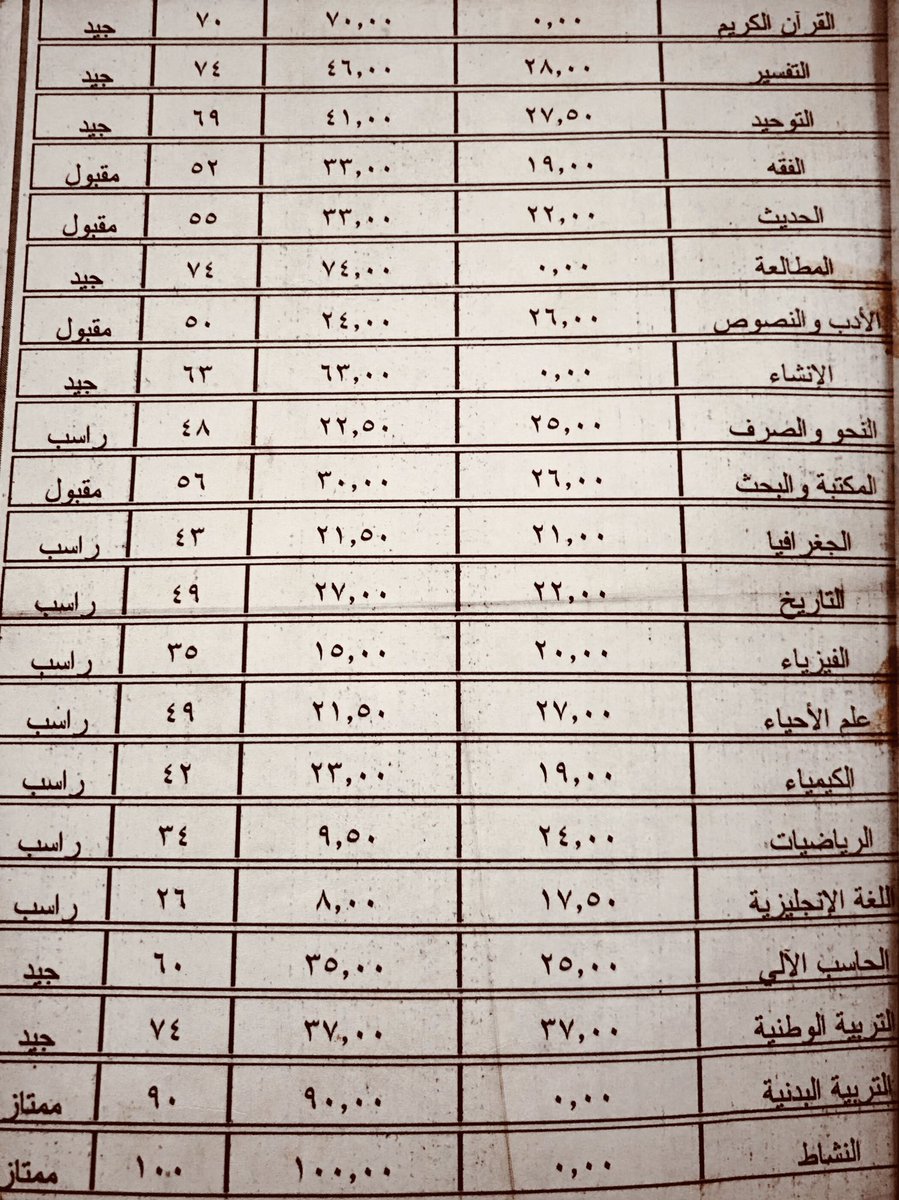 القرآن الكريم ٠,٠٠ ٧٠,٠٠ ٧٠ جيد
التفسير ٢٨,٠٠ ٤٦,٠٠ ٧٤ جيد
التوحيد ٢٧,٥٠ ٤١,٠٠ ٦٩ جيد
الفقه ١٩,٠٠ ٣٣,٠٠ ٥٢ مقبول
الحديث ٢٢,٠٠ ٣٣,٠٠ ٥٥ مقبول
المطالعة ٠,٠٠ ٧٤,٠٠ ٧٤ جيد
الأدب والنصوص ٢٦,٠٠ ٢٤,٠٠ ٥٠ مقبول
الإنشاء ٠,٠٠ ٦٣,٠٠ ٦٣ جيد
النحو والصرف ٢٥,٠٠ ٢٢,٥٠ ٤٨ راسب
المكتبة والبحث ٢٦,٠٠ ٣٠,٠٠ ٥٦ مقبول
الجغرافيا ٢١,٠٠ ٢١,٥٠ ٤٣ راسب
التاريخ ٢٢,٠٠ ٢٧,٠٠ ٤٩ راسب
الفيزياء ٢٠,٠٠ ١٥,٠٠ ٣٥ راسب
علم الأحياء ٢٧,٠٠ ٢١,٥٠ ٤٩ راسب
الكيمياء ١٩,٠٠ ٢٣,٠٠ ٤٢ راسب
الرياضيات ٢٤,٠٠ ٩,٥٠ ٣٤ راسب
اللغة الإنجليزية ١٧,٥٠ ٨,٠٠ ٢٦ راسب
الحاسب الآلي ٢٥,٠٠ ٣٥,٠٠ ٦٠ جيد
التربية الوطنية ٣٧,٠٠ ٣٧,٠٠ ٧٤ جيد
التربية البدنية ٠,٠٠ ٩٠,٠٠ ٩٠ ممتاز
النشاط ٠,٠٠ ١٠٠,٠٠ ١٠٠ ممتاز